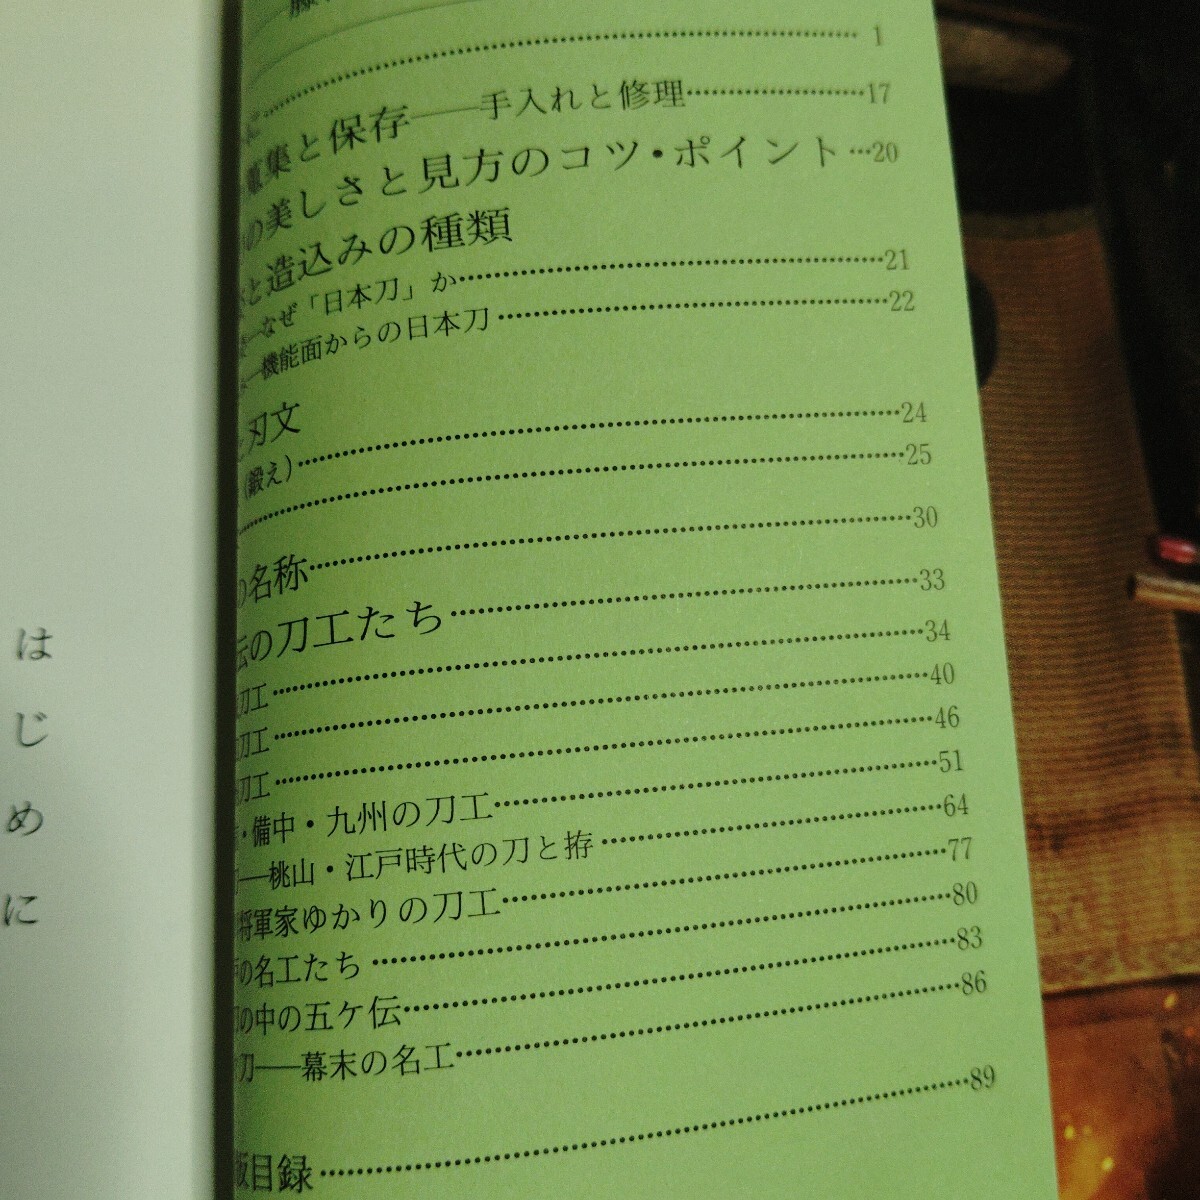 に 1
蒐集と保存――手入れと修理 17
の美しさと見方のコツ・ポイント 20
と造込みの種類
なぜ「日本刀」か 21
機能面からの日本刀 22
刃文
(鍛え) 24
25
の名称 30
伝の刀工たち 33
刀工 34
刀工 40
刀工 46
・備中・九州の刀工 51
―桃山・江戸時代の刀と拵 64
将軍家ゆかりの刀工 77
の名工たち 80
の中の五ケ伝 83
刀――幕末の名工 86
89
版目録
はじめに